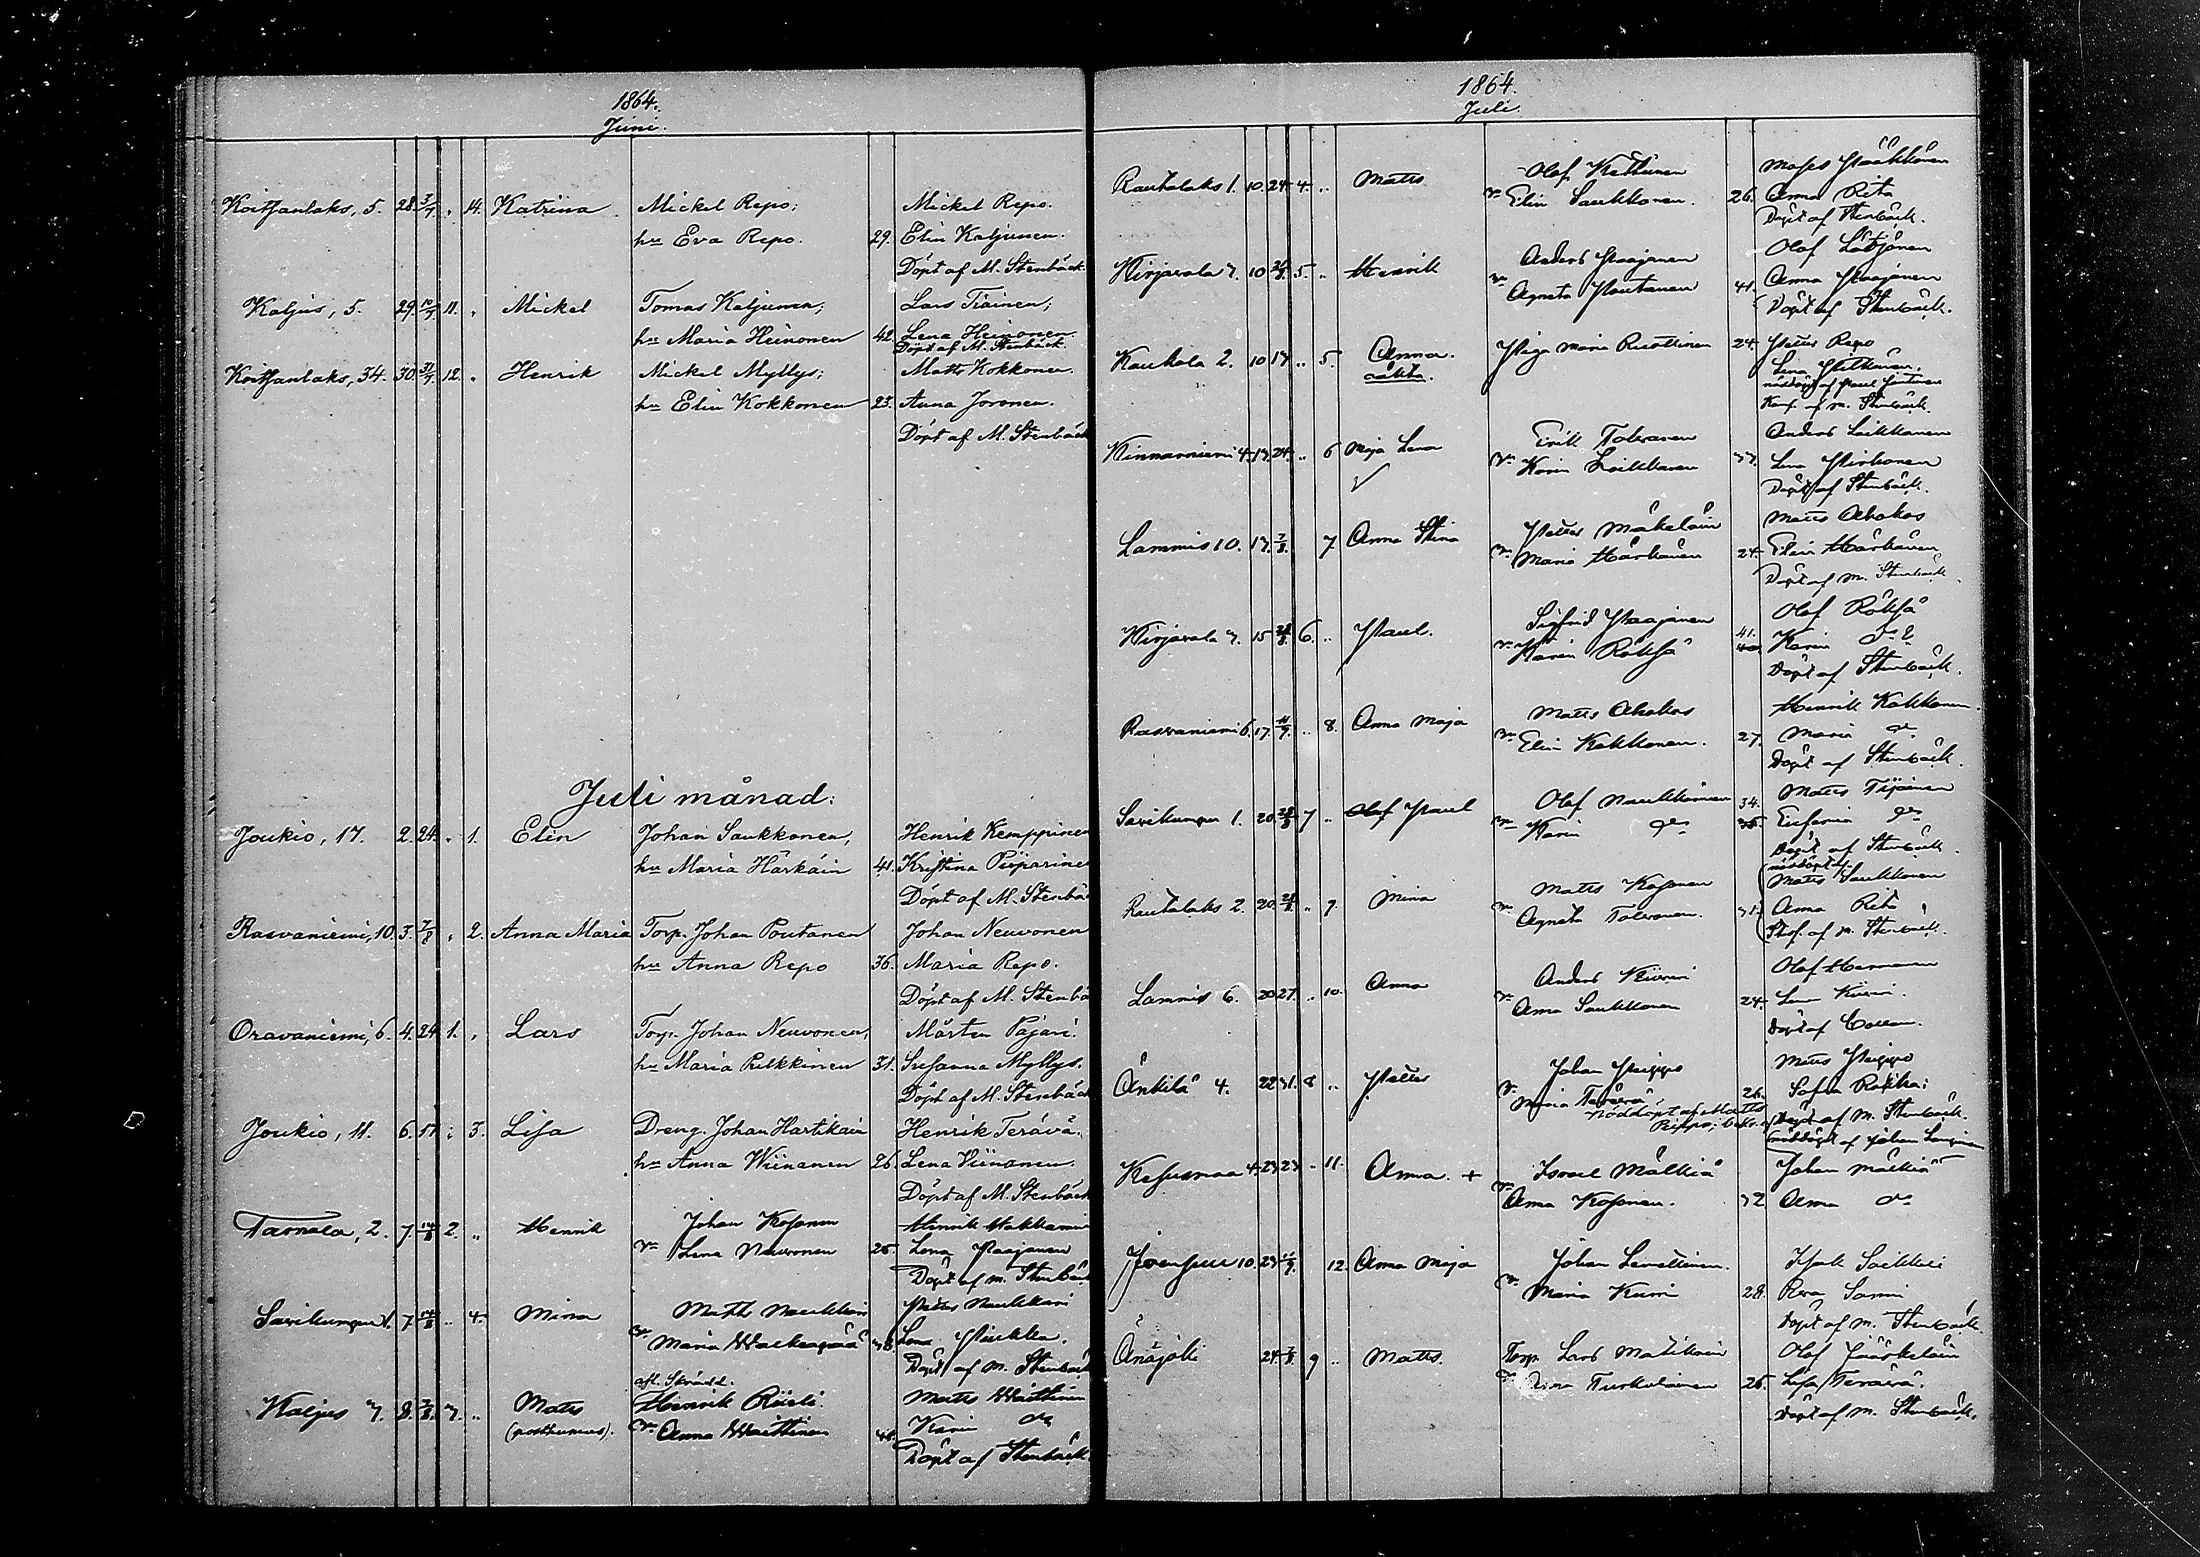 1864.
Juni.
Koitsanlaks, 5. 28. 3/7 " 14. Katrina. Mickel Repo; Mickel Repo.
hu Eva Repo. 29. Elin Kaljunen.
Döpt af M. Stenbäck.
Kaljus, 5. 29. 10/7 11. " Mickel Tomas Kaljunen; Lars Tiainen;
hu Maria Heinonen 42. Lena Heinonen.
Döpt af M. Stenbäck.
Koitsanlaks, 34. 30. 31/7 12. " Henrik Mickel Myllys; Matts Kokkonen.
hu Elin Kokkonen 23. Anna Joronen.
Döpt af M. Stenbäck
Juli månad:
Joukio, 17. 2. 24. " 1. Elin Johan Saukkonen, Henrik Kemppinen
hu Maria Härkäin 41. Kristina Piiparinen
Döpt af M. Stenbäck
Rasvaniemi, 10. 3. 7/8 " 2. Anna Maria Torp. Johan Poutanen Johan Neuvonen
hu Anna Repo 36. Maria Repo.
Döpt af M. Stenbä
Oravaniemi, 6. 4. 24. 1. " Lars Torp. Johan Neuvonen, Mårten Pajari.
hu Maria Pulkkinen 31. Susanna Myllys.
Döpt af M. Stenbäck
Joukio, 11. 6. 17. " 3. Lisa Dreng. Johan Hartikain Henrik Terävä.
hu Anna Wiinanen 26. Lena Viinanen.
Döpt af M. Stenbäck
Tarnala, 2. 7. 14/8 2. " Henrik Johan Kosonen Henrik
Lena Neuvonen 25. Lena Paajanen
Döpt af M. Stenbäck
Sarikumpu 1. 7. 14/8 " 4. Mina Matts Naukkari Petter Naukkari
Maria Lena
Döpt af M. Stenbäck
afl. Skrädd.
Kaljus 7. 8. 7/8. 3. " Matts Henrik Matts Waittinen
(posthumus). Anna Waittinen Karin do
Döpt af Stenbäck.
1864.
Juli.
Rautalaks 1. 10. 24. 4. " Matts Olof Kettunen Moses Pääkkönen
Elin Saukkonen. 26. Anna Rita
Döpt af Stenbäck.
Kirjavala 7. 10 5. " Henrik Anders Paajanen Olof Lötjönen
Agneta Poutanen 41. Anna Paajanen
Döpt af Stenbäck.
Kaukola 2. 10 17 " 5. Anna. Piga Maria Ruottinen 24. Petter Repo
oäkta. Lena Pitkänen.
nöddöpt af Paul
Konf. af M. Stenbäck.
Kinnarniemi 4. 17. 24. " 6 Maja Lena Erik Tolvanen Anders Loikkanen
Karin Loikkanen 37. Lena Hirvonen
Döpt af Stenbäck.
Lammis 10. 17. 7/8. 7 Anna Stina Petter Mäkeläin Matts Ahokas
Maria Härkänen 24. Elin Härkänen
Döpt af M. Stenbäck.
Kirjavala 7. 15 28/8 6. " Paul. Sigfrid Paajanen Olof Röksä
41.
Karin Röksä Karin do
Döpt af Stenbäck.
Rasvaniemi 6. 17. 11/9. " 8. Anna Maja Matts Ahokas Henrik Kokkonen.
Elin Kokkonen. 27. Maria do
Döpt af Stenbäck.
Sarikumpu 1. 20. 28/8 7 " Olof Paul Olof Naukkarinen 34. Matts Tijainen
Karin do Eufemia do
Döpt af Stenbäck.
nöddöpt af
Rautalaks 2. 20. 28/8. " 9. Mina Matts Kosonen Matts Saukkonen
Agneta Tolvanen. 31. Anna Rita
Konf. af M. Stenbäck.
Lammis 6. 20 27. " 10. Anna Anders Kiiveri Olof
Anna Saukkonen 24. Lena Kiiveri.
Döpt af
Änkilä 4. 22 31. 8 " Petter Johan Pippo Matts Pippo
Maria Terävä 26. Sofia
Nöddöpt af Matts Döpt af M. Stenbäck.
Pippo; nöddöpt af Johan
Kesusmaa 4. 23 23 " 11. Anna. + Israel Mälkiä Johan Mälkiä
Anna Kosonen. 32 Anna do
10. 23 12. Anna Maja Johan
Maria 28.
Döpt af M. Stenbäck.
Änäjoki 24. 9 " Matts. Torp. Lars Matikain Olof Jääskeläin
Turkulainen 26. Lisa Terävä.
Döpt af M. Stenbäck.